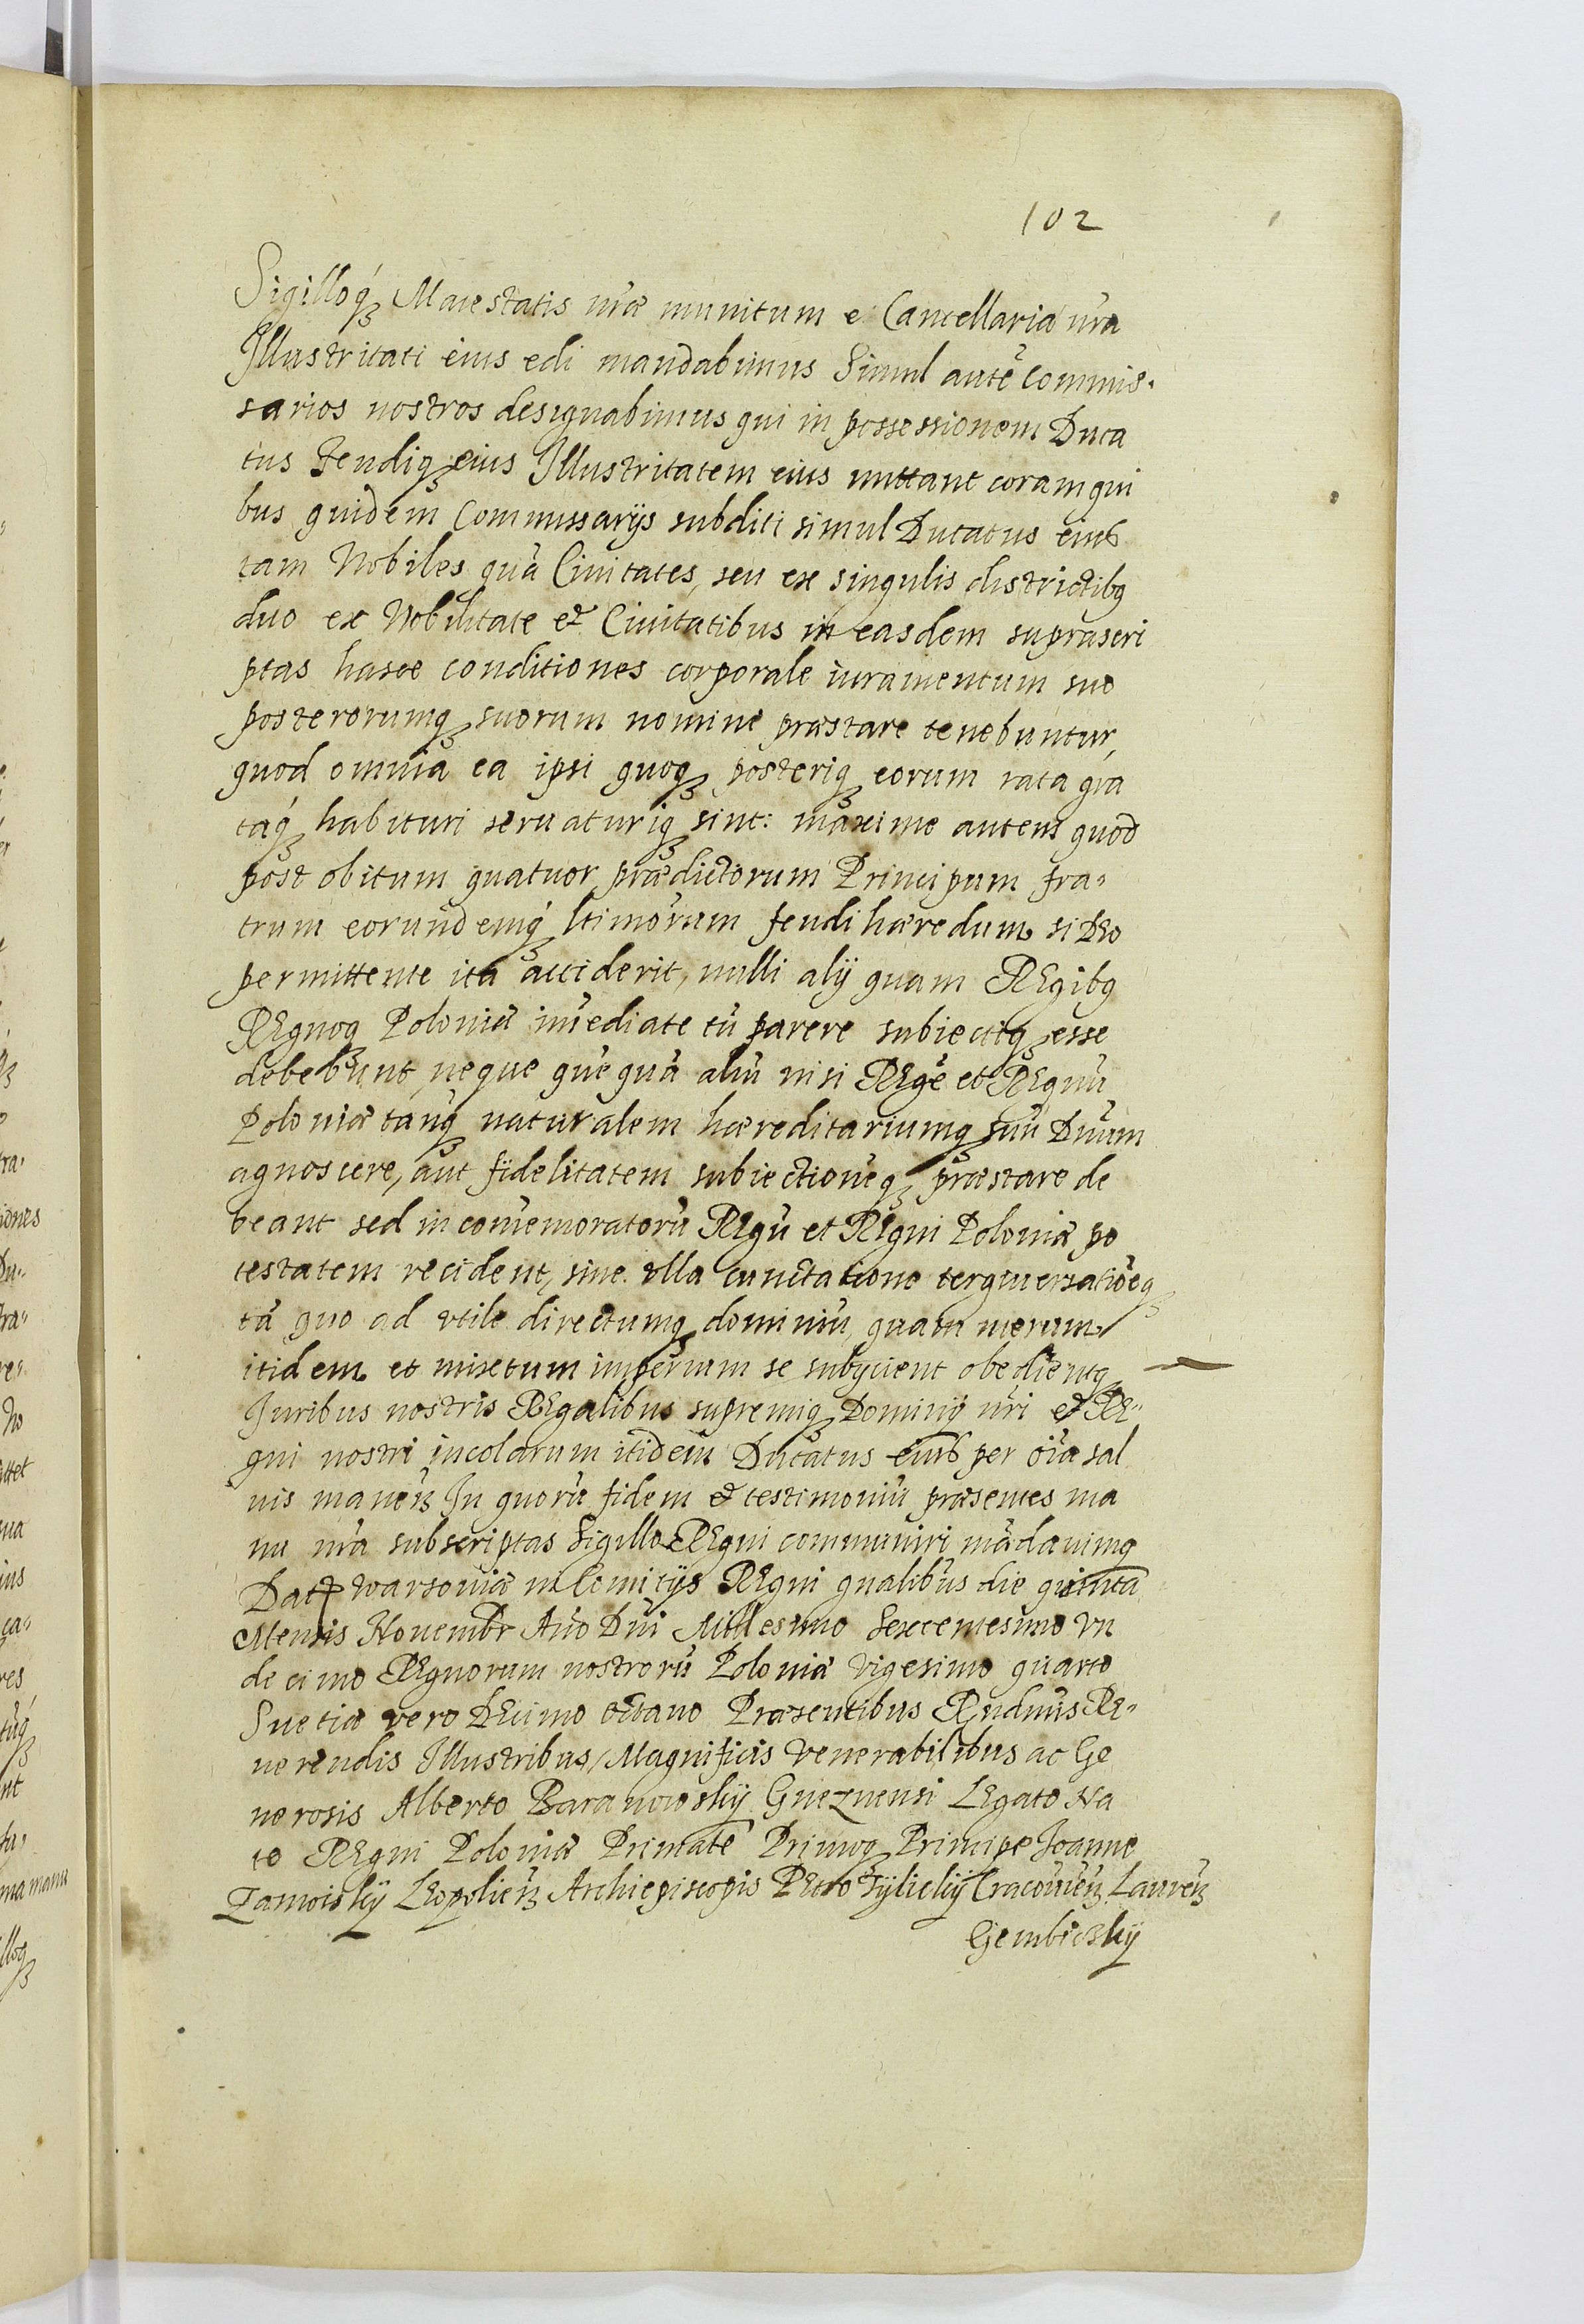 102
Sigilloq́ꝫ Maiestatis nr̃æ munitum e Cancellaria nr̃a
Illustritati eius edi mandabimus Simul autẽ Commis-
sarios nostros designabimus qui in possessionem Duca
tus feudiqꝫ eius Illustritatem eius mittant coram qui
bus quidem Commissarijs subditi simul Ducatus eius
tam Nobiles quã Ciuitates, seu ex singulis districtibꝰ
duo ex Nobilitate et Ciuitatibus in easdem suprascri
ptas hasce conditiones corporale iuramentum suo
posterorumqꝫ suorum nomine præstare tenebuntur,
quod omnia ea ipsi quoqꝫ posteriqꝫ eorum rata gra
taq́ꝫ habituri seruaturiqꝫ sint: maxime autem quod
post obitum quatuor prædictorum Principum fra-
trum eorundemq́ꝫ ltimorum feudi hæredum si Deo
permittente ita acciderit, nulli alij quam REgibꝰ
REgnoqꝫ Poloniæ im̃ediate tũ parere subiectiqꝫ esse
debebunt neque quẽquã aliũ nisi REgẽ et REgnũ
Poloniæ tanq̃ꝫ naturalem hæreditariumqꝫ suũ Dñum
agnoscere, aut fidelitatem subiectionẽqꝫ præstare de
beant sed in com̃emoratorũ REgũ et REgni Poloniæ po
testatem recident, sine vlla cunctatione tergiuersatiõeqꝫ
tã quo ad vtile directumqꝫ dominiũ, quam merum
itidem et mixtum imperium se subijcient obedientqꝫ
Iuribus nostris REgalibus supremiqꝫ Dominij nr̃i et RE-
gni nostri incolarum itidem Ducatus eius per oĩa sal
uis manen̄ꝫ In quorũ fidem et testimoniũ præsentes ma
nu nr̃a subscriptas Sigillo REgni communiri mãdauimꝰ
Dat̃ Warsouiæ in Comitijs REgni gñalibus die quinta
Mensis Nouembr̃ Año Dñi Millesimo Sexcentesimo Vn
decimo REgnorum nostrorũ Poloniæ Vigesimo quarto
Suetiæ vero DEcimo octauo Præsentibus REndmis RE-
uerendis Illustribus, Magnificis Venerabilibus ac Ge
nerosis Alberto Baranowsky Gneznensi LEgato Na
to REgni Poloniæ Primate Primoqꝫ Principe Joanne
Zamoisky LEopolien̄ꝫ Archiepiscopis PEtro Tylicky Cracouien̄ꝫ Lauren̄ꝫ
Gembicsky